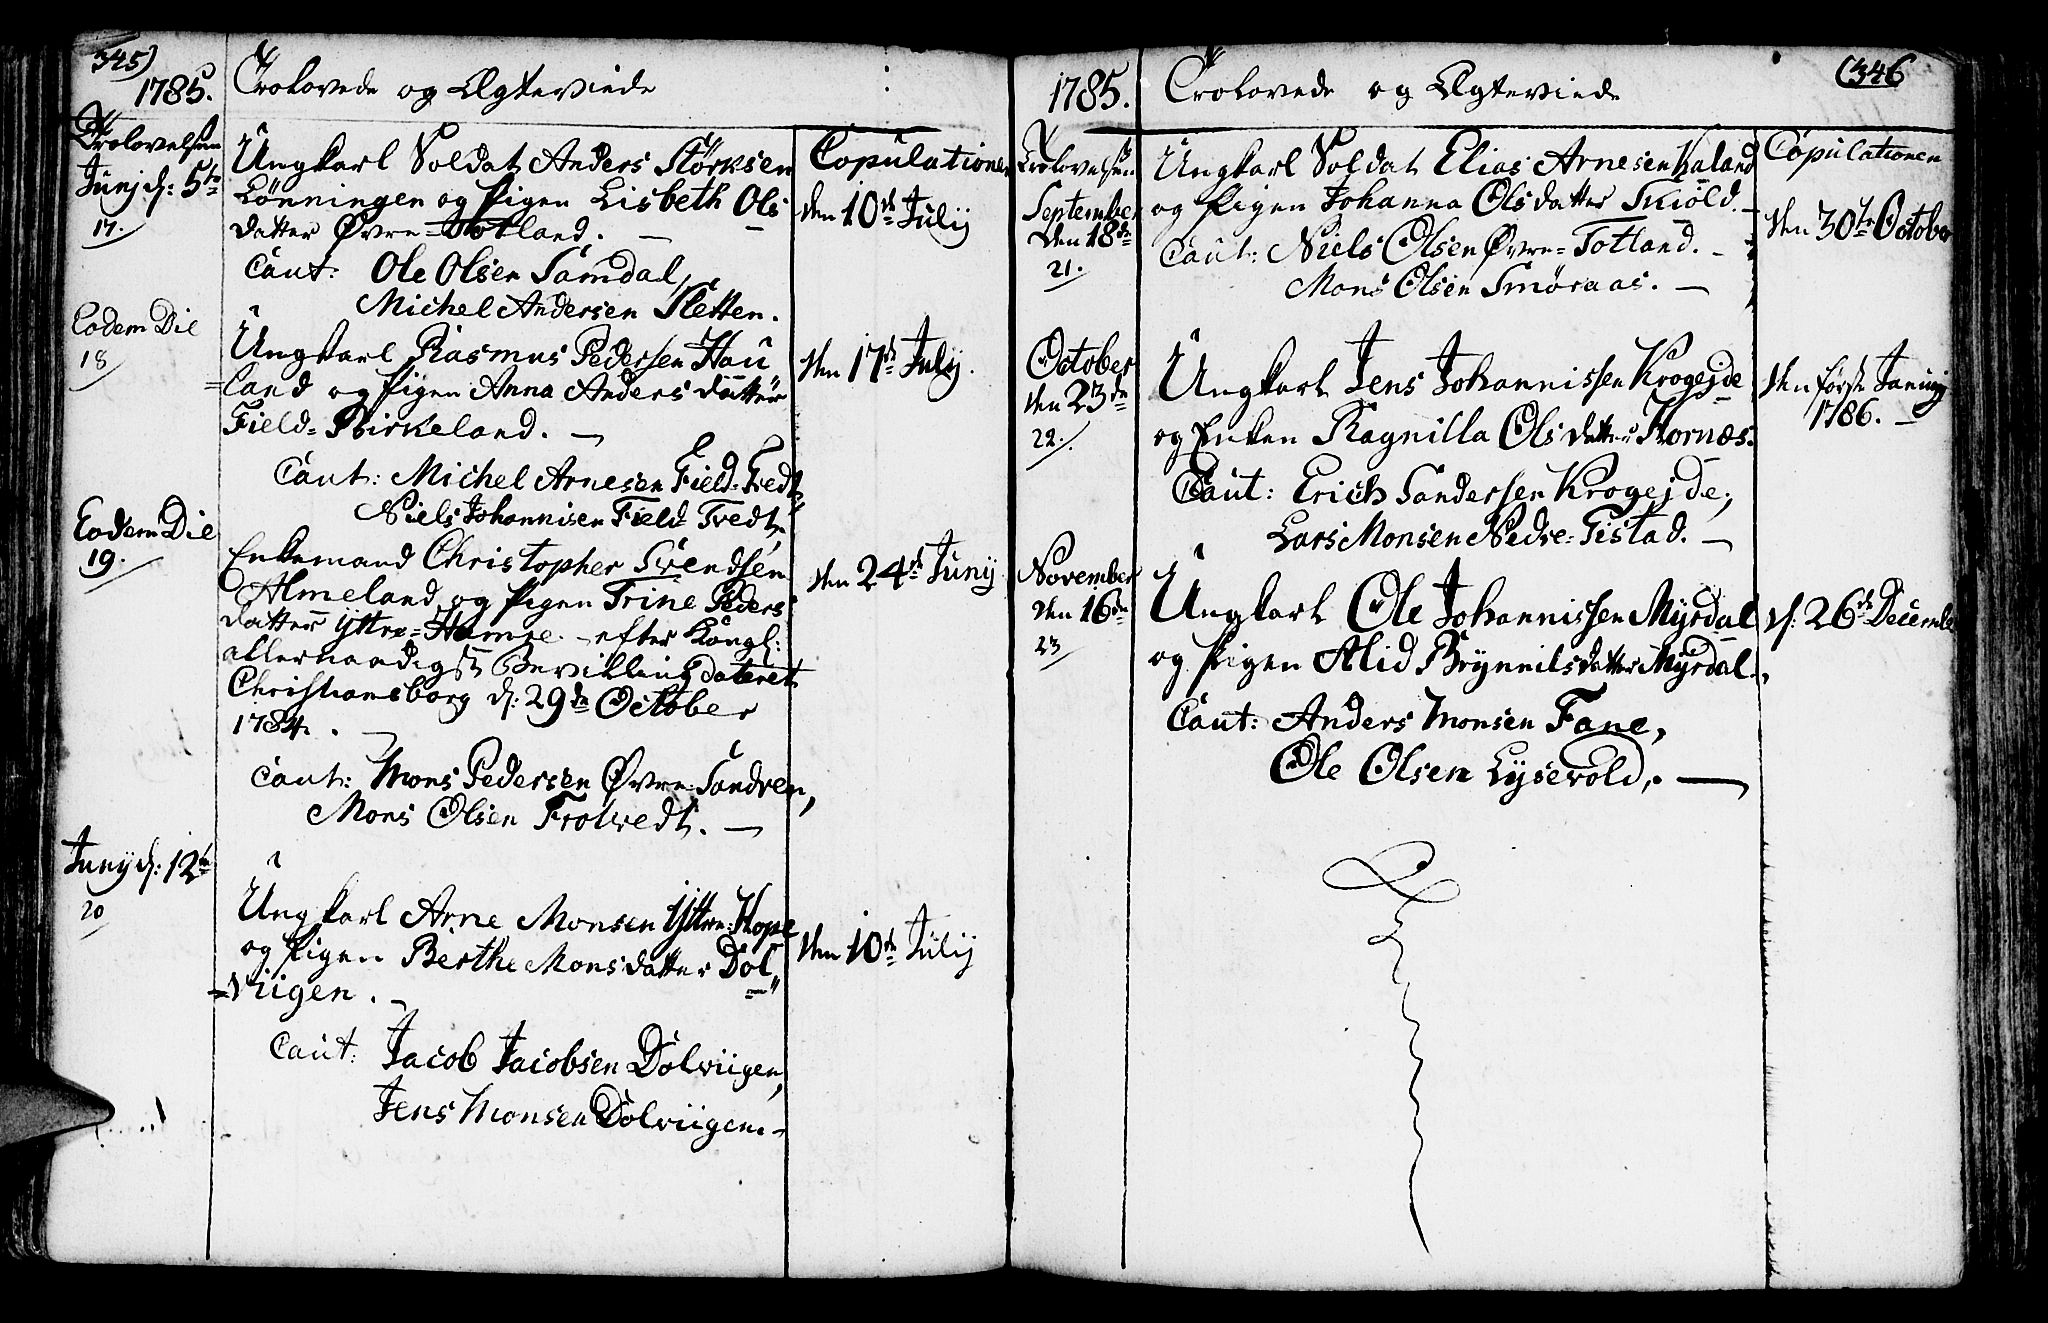 345)
1785.
Trolovede og Ægteviede
Trolovelsen
Junj d: 5te
17.
Ungkarl Soldat Anders Størksen
Lønningen og Pigen Lisbeth Ols
datter Øvre=Totland. —
Caut: Ole Olsen Samdal,
Michel Andersen Sletten.
Copulationen
den 10de Julij
Eodem Die
18
Ungkarl Rasmus Pedersen Hau
=land og Pigen Anna Anders datter
Field=Birkeland. —
Caut: Michel Arnesen Field=Tvedt,
Niels Johannisen Field Tvedt.
den 17de Julij.
Eodem Die
19.
Enkemand Christopher Svendsen
Hlmeland og Pigen Trine Peders
datter Yttre=Hamre. — efter Kongl:
allernaadigst Bevilling dateret
Christiansborg d: 29de October
1784. —
Caut: Mons Pedersen Øvre Sandven,
Mons Olsen Frotvedt. —
den 24de Junij
Junij d: 12te
20
Ungkarl Arne Monsen Yttre=Hope
og Pigen Berthe Monsdatter Dol
=viigen. —
Caut: Jacob Jacobsen Dolviigen,
Jens Monsen Dolviigen. —
den 10de Julij
(346
1785.
Trolovede og Ægteviede
Trolovelsen
September
den 18de
21.
Ungkarl Soldat Elias Arnesen Kaland
og Pigen Johanna Olsdatter Skiold. —
Caut: Niels Olsen Øvre=Totland. —
Mons Olsen Smøraas. —
Copulationen
den 30te October
October
den 23de
22.
Ungkarl Jens Johannissen Krogejde
og Enken Ragnilla Olsdatter Hornæs.
Caut: Erich Sandersen Krogejde,
Lars Monsen Nedre=Tistad. —
den første Januarij
1786. —
November
den 16de
23
Ungkarl Ole Johannissen Myrdal
og Pigen Alid Brynnilsdatter Myrdal.
Caut: Anders Monsen Fane,
Ole Olsen Lysevold. —
d: 26de December